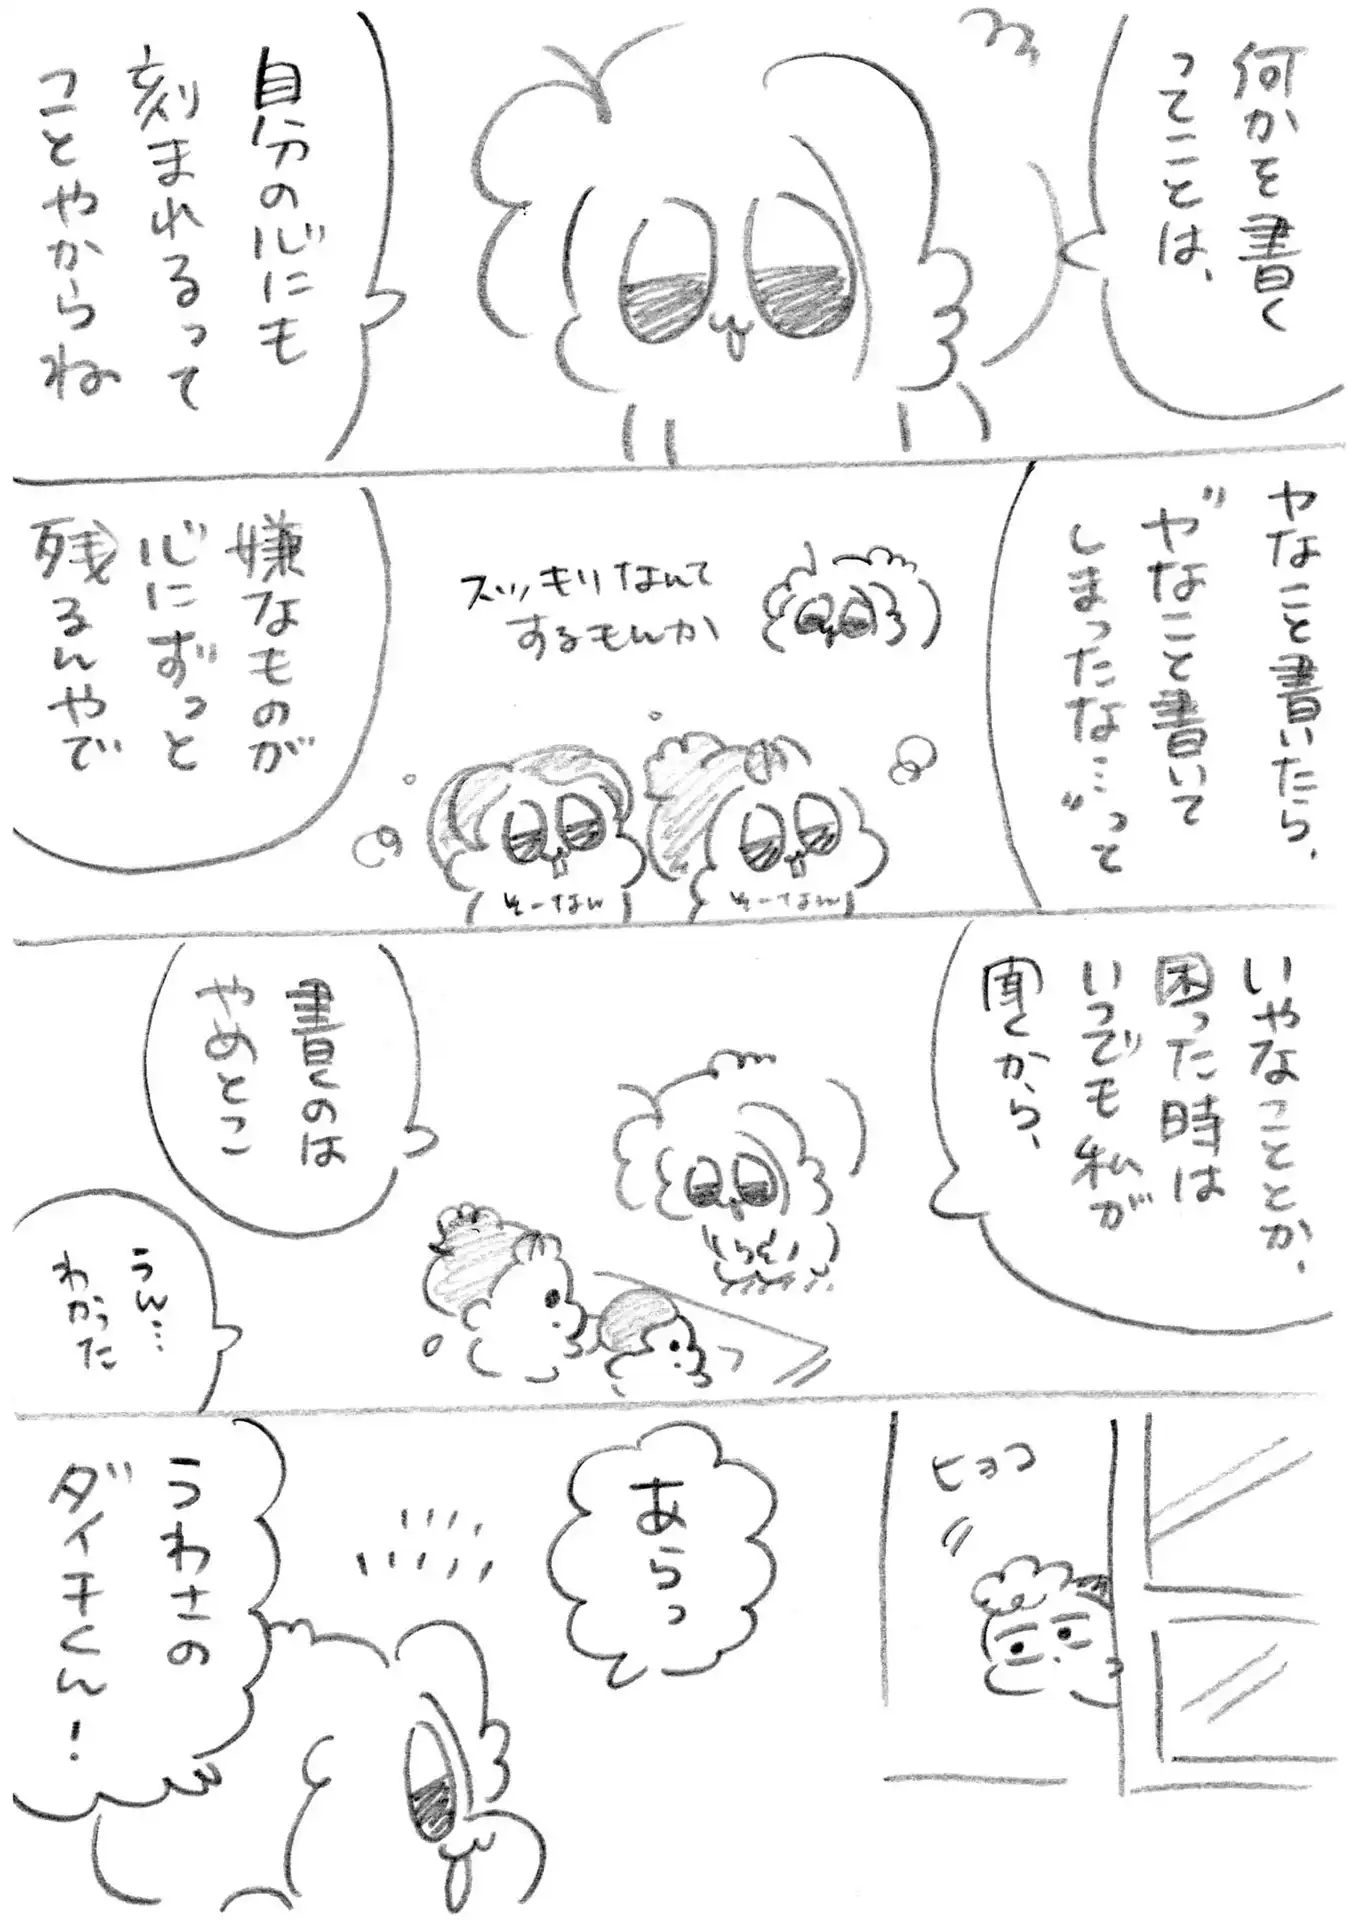 何かを書く
ってことは、
自分の心にも
刻まれるって
ことやからね
ヤなこと書いたら、
“ヤなこと書いて
しまったな…”って
スッキリなんて
するもんか
そーなん
そーなん
嫌なものが
心にずっと
残るんやで
いやなこととか、
困った時は
いつでも私が
聞くから、
書くのは
やめとこ
うん…
わかった
ヒョコ
あらっ
うわさの
ダイチくん!